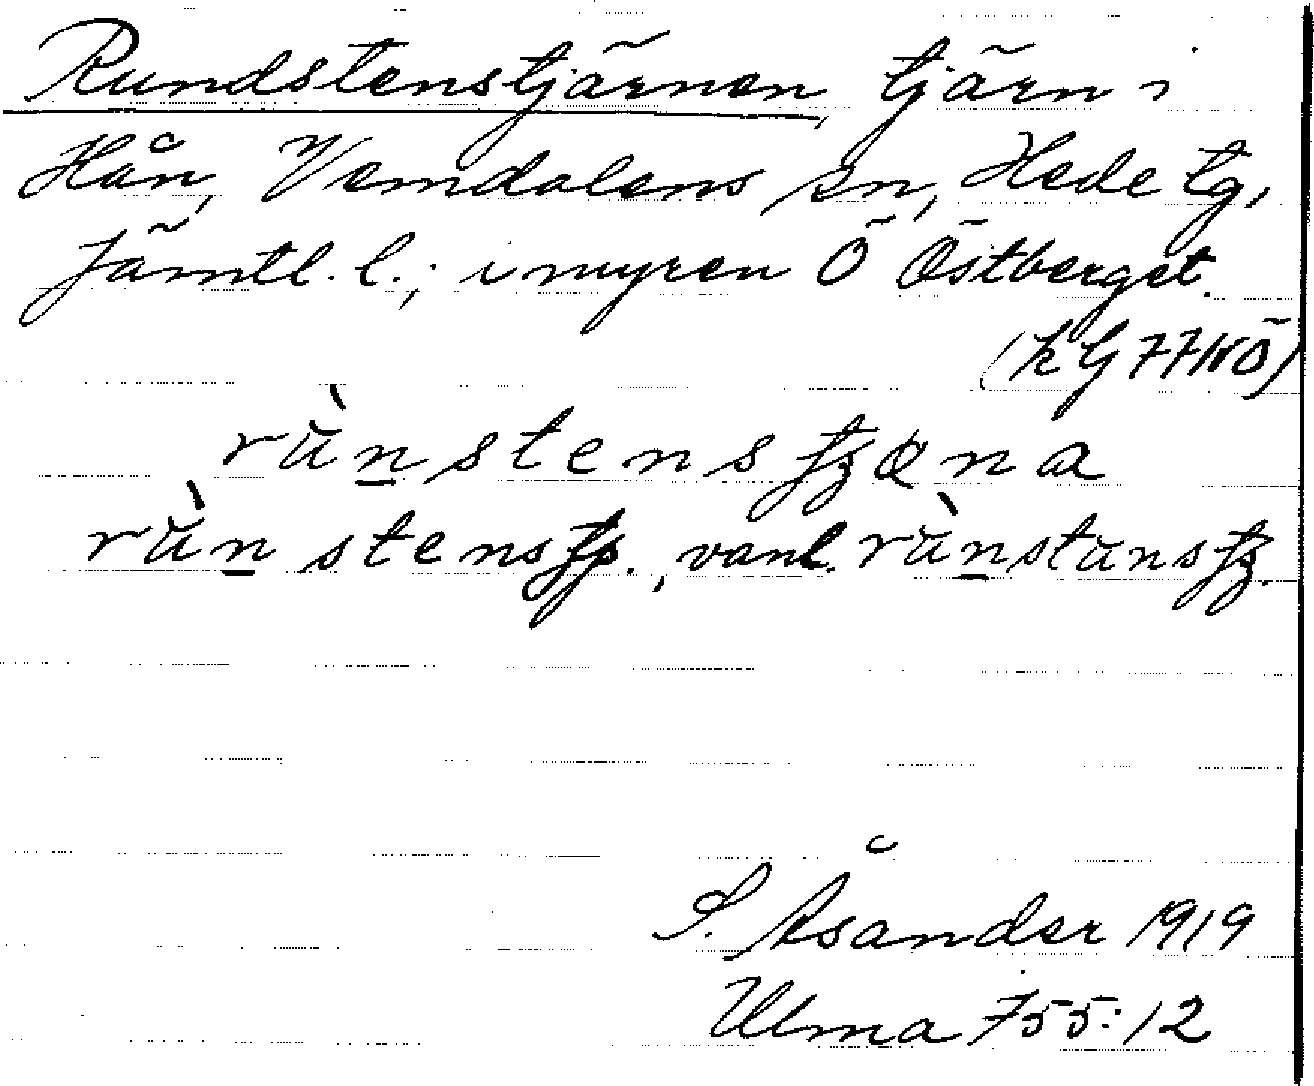 Rundstenstjärnen, tjärn i
Hån, Vemdalens sn, Hede tg,
Jämtl. l.; i myren Ö Östberget.
(kG 77NÖ)
rùn̲stens
rùn̲ stens , vanl. rùn̲stuns
S. Åsander 1919
Ulma 755:12